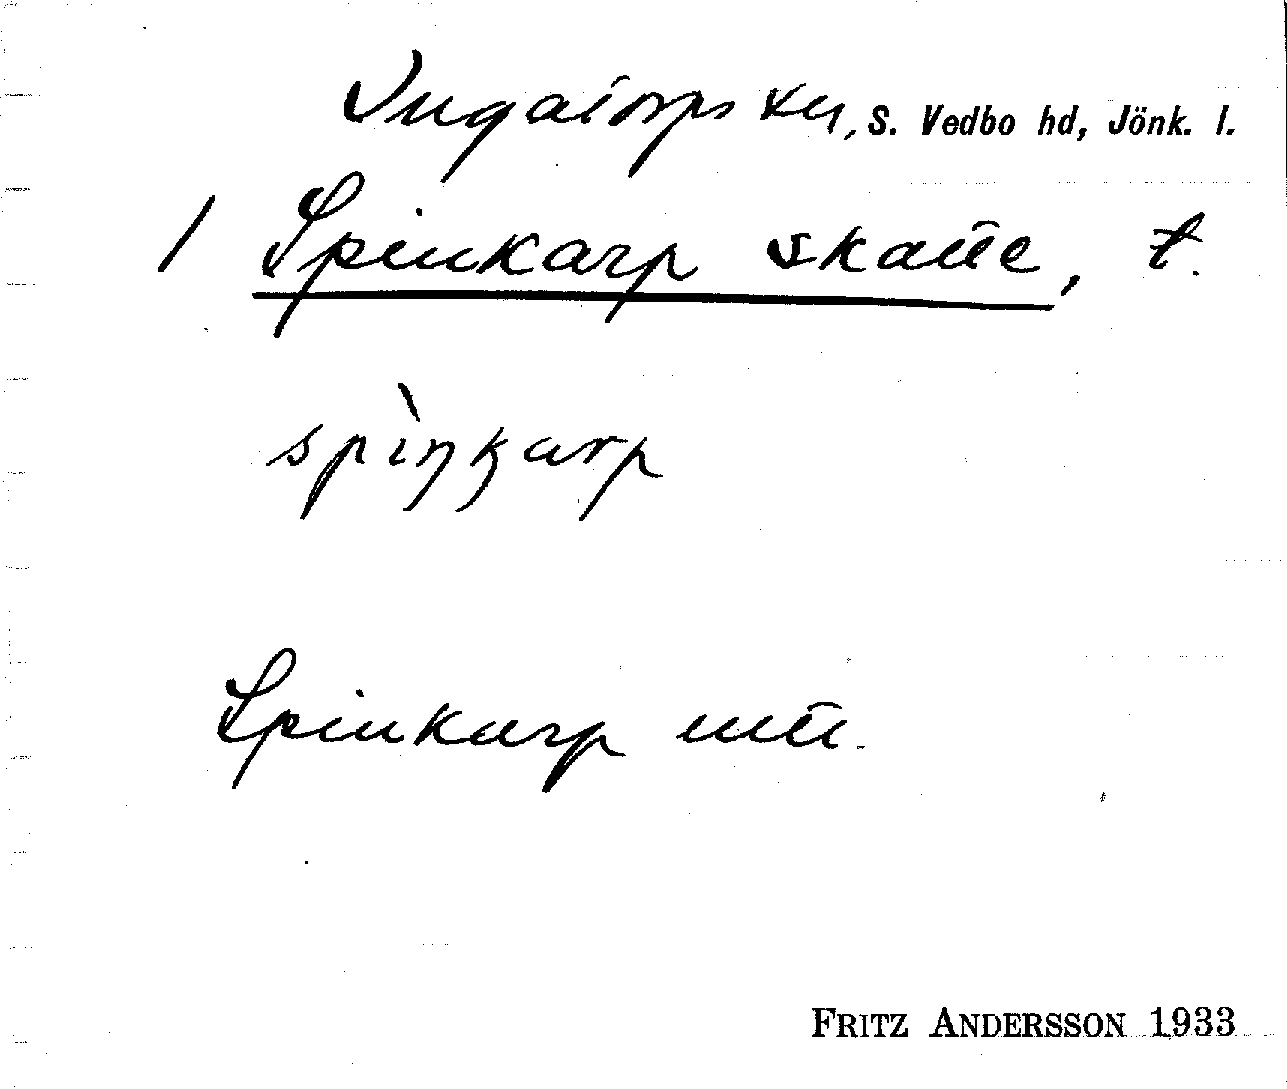 Ingatorps sn, S. Vedbo hd, Jönk. l.
1 Spinkarp skatte, t.
spìŋkarp
Spinkarp mtl.
FRITZ ANDERSSON 1933